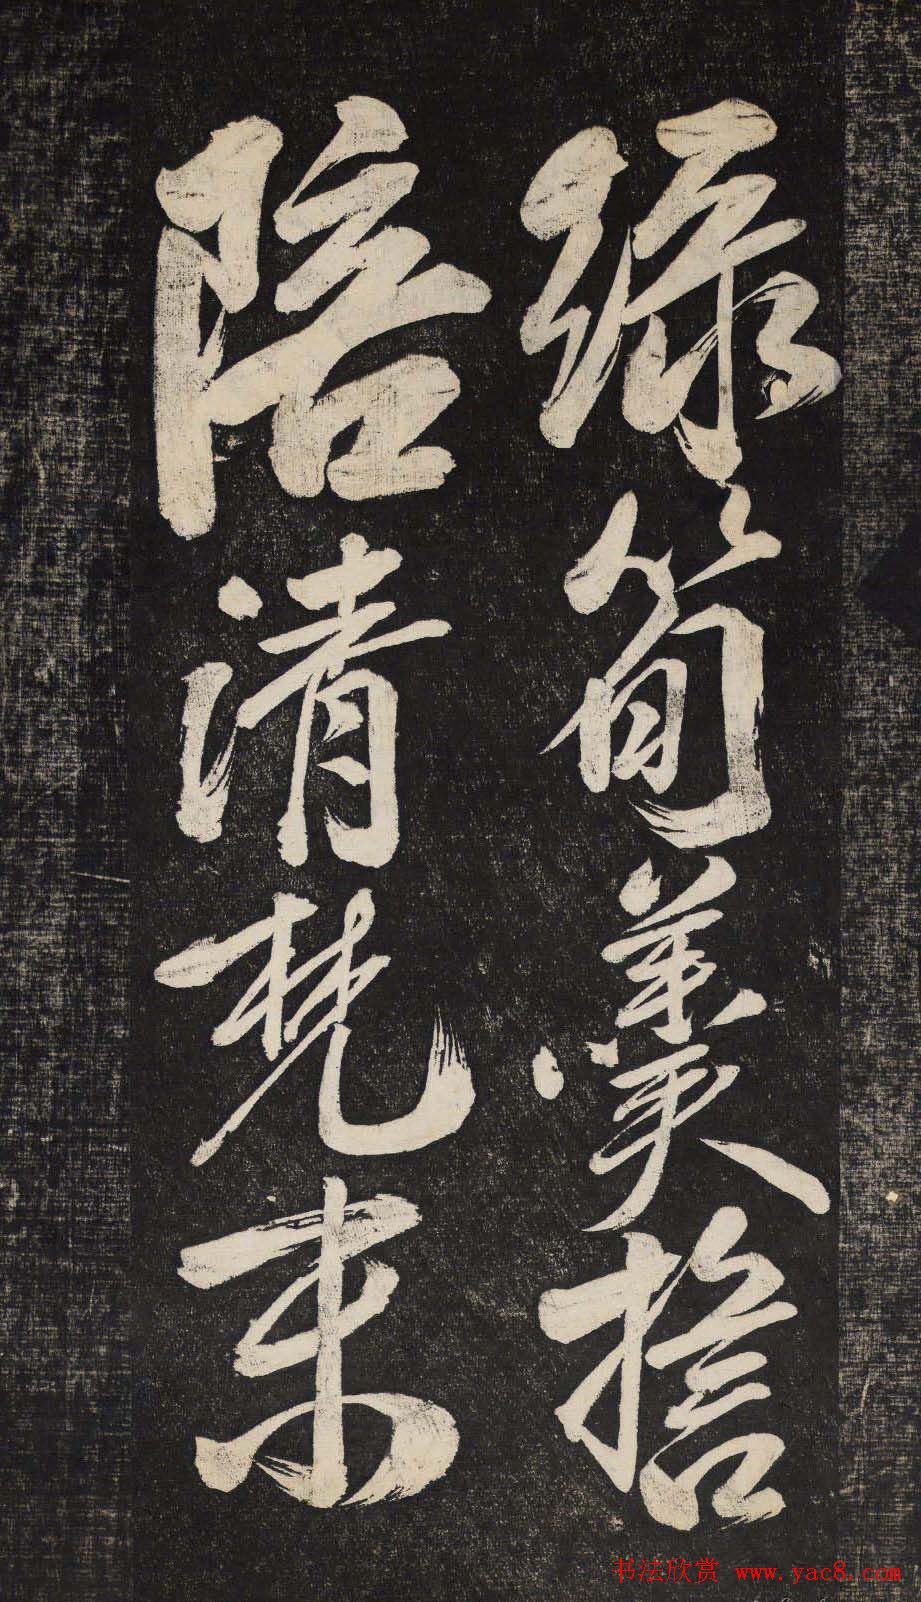 綠筍羹捨
陪清梵末
书法欣赏 www.yac8.com